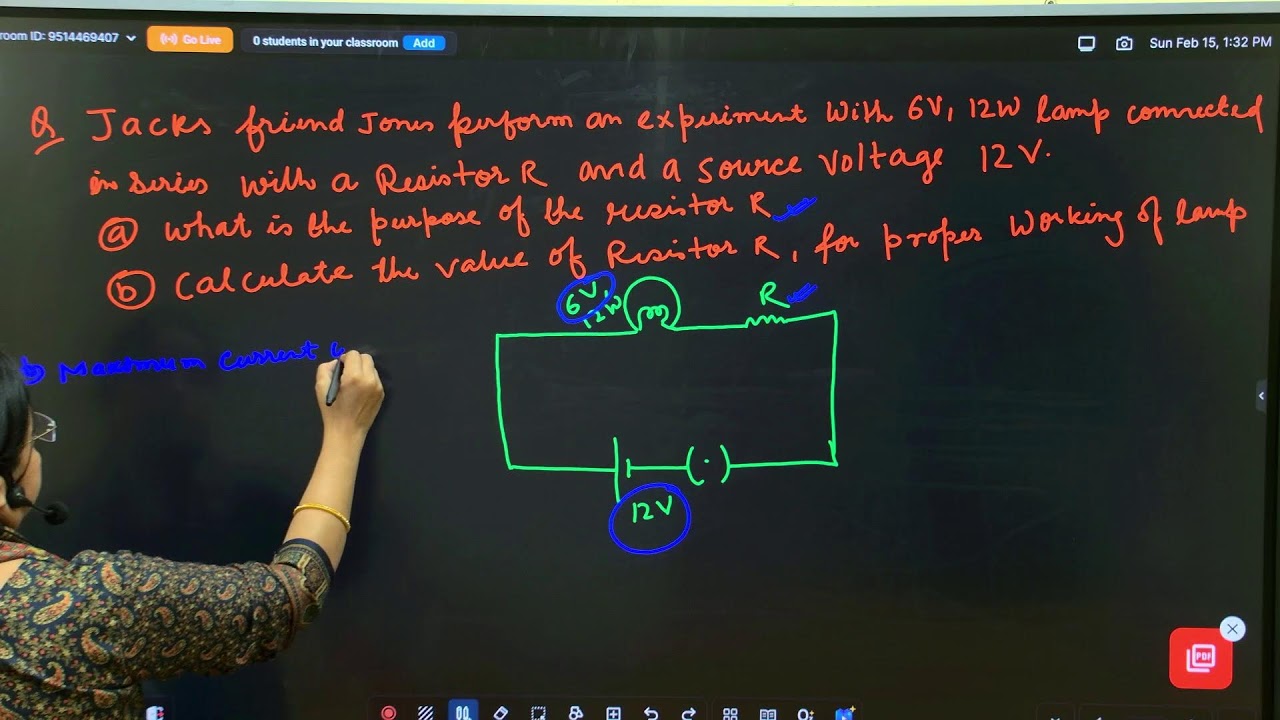 room ID: 9514469407
Go Live
0 students in your classroom Add
Sun Feb 15, 1:32 PM
Q Jacks friend Jones perform an experiment with 6V, 12W lamp connected
in series with a Resistor R and a source voltage 12V.
(a) what is the purpose of the resistor R
(b) Calculate the value of Resistor R, for proper working of lamp
6V,
12W
R
b) Maximum current
12V
PDF